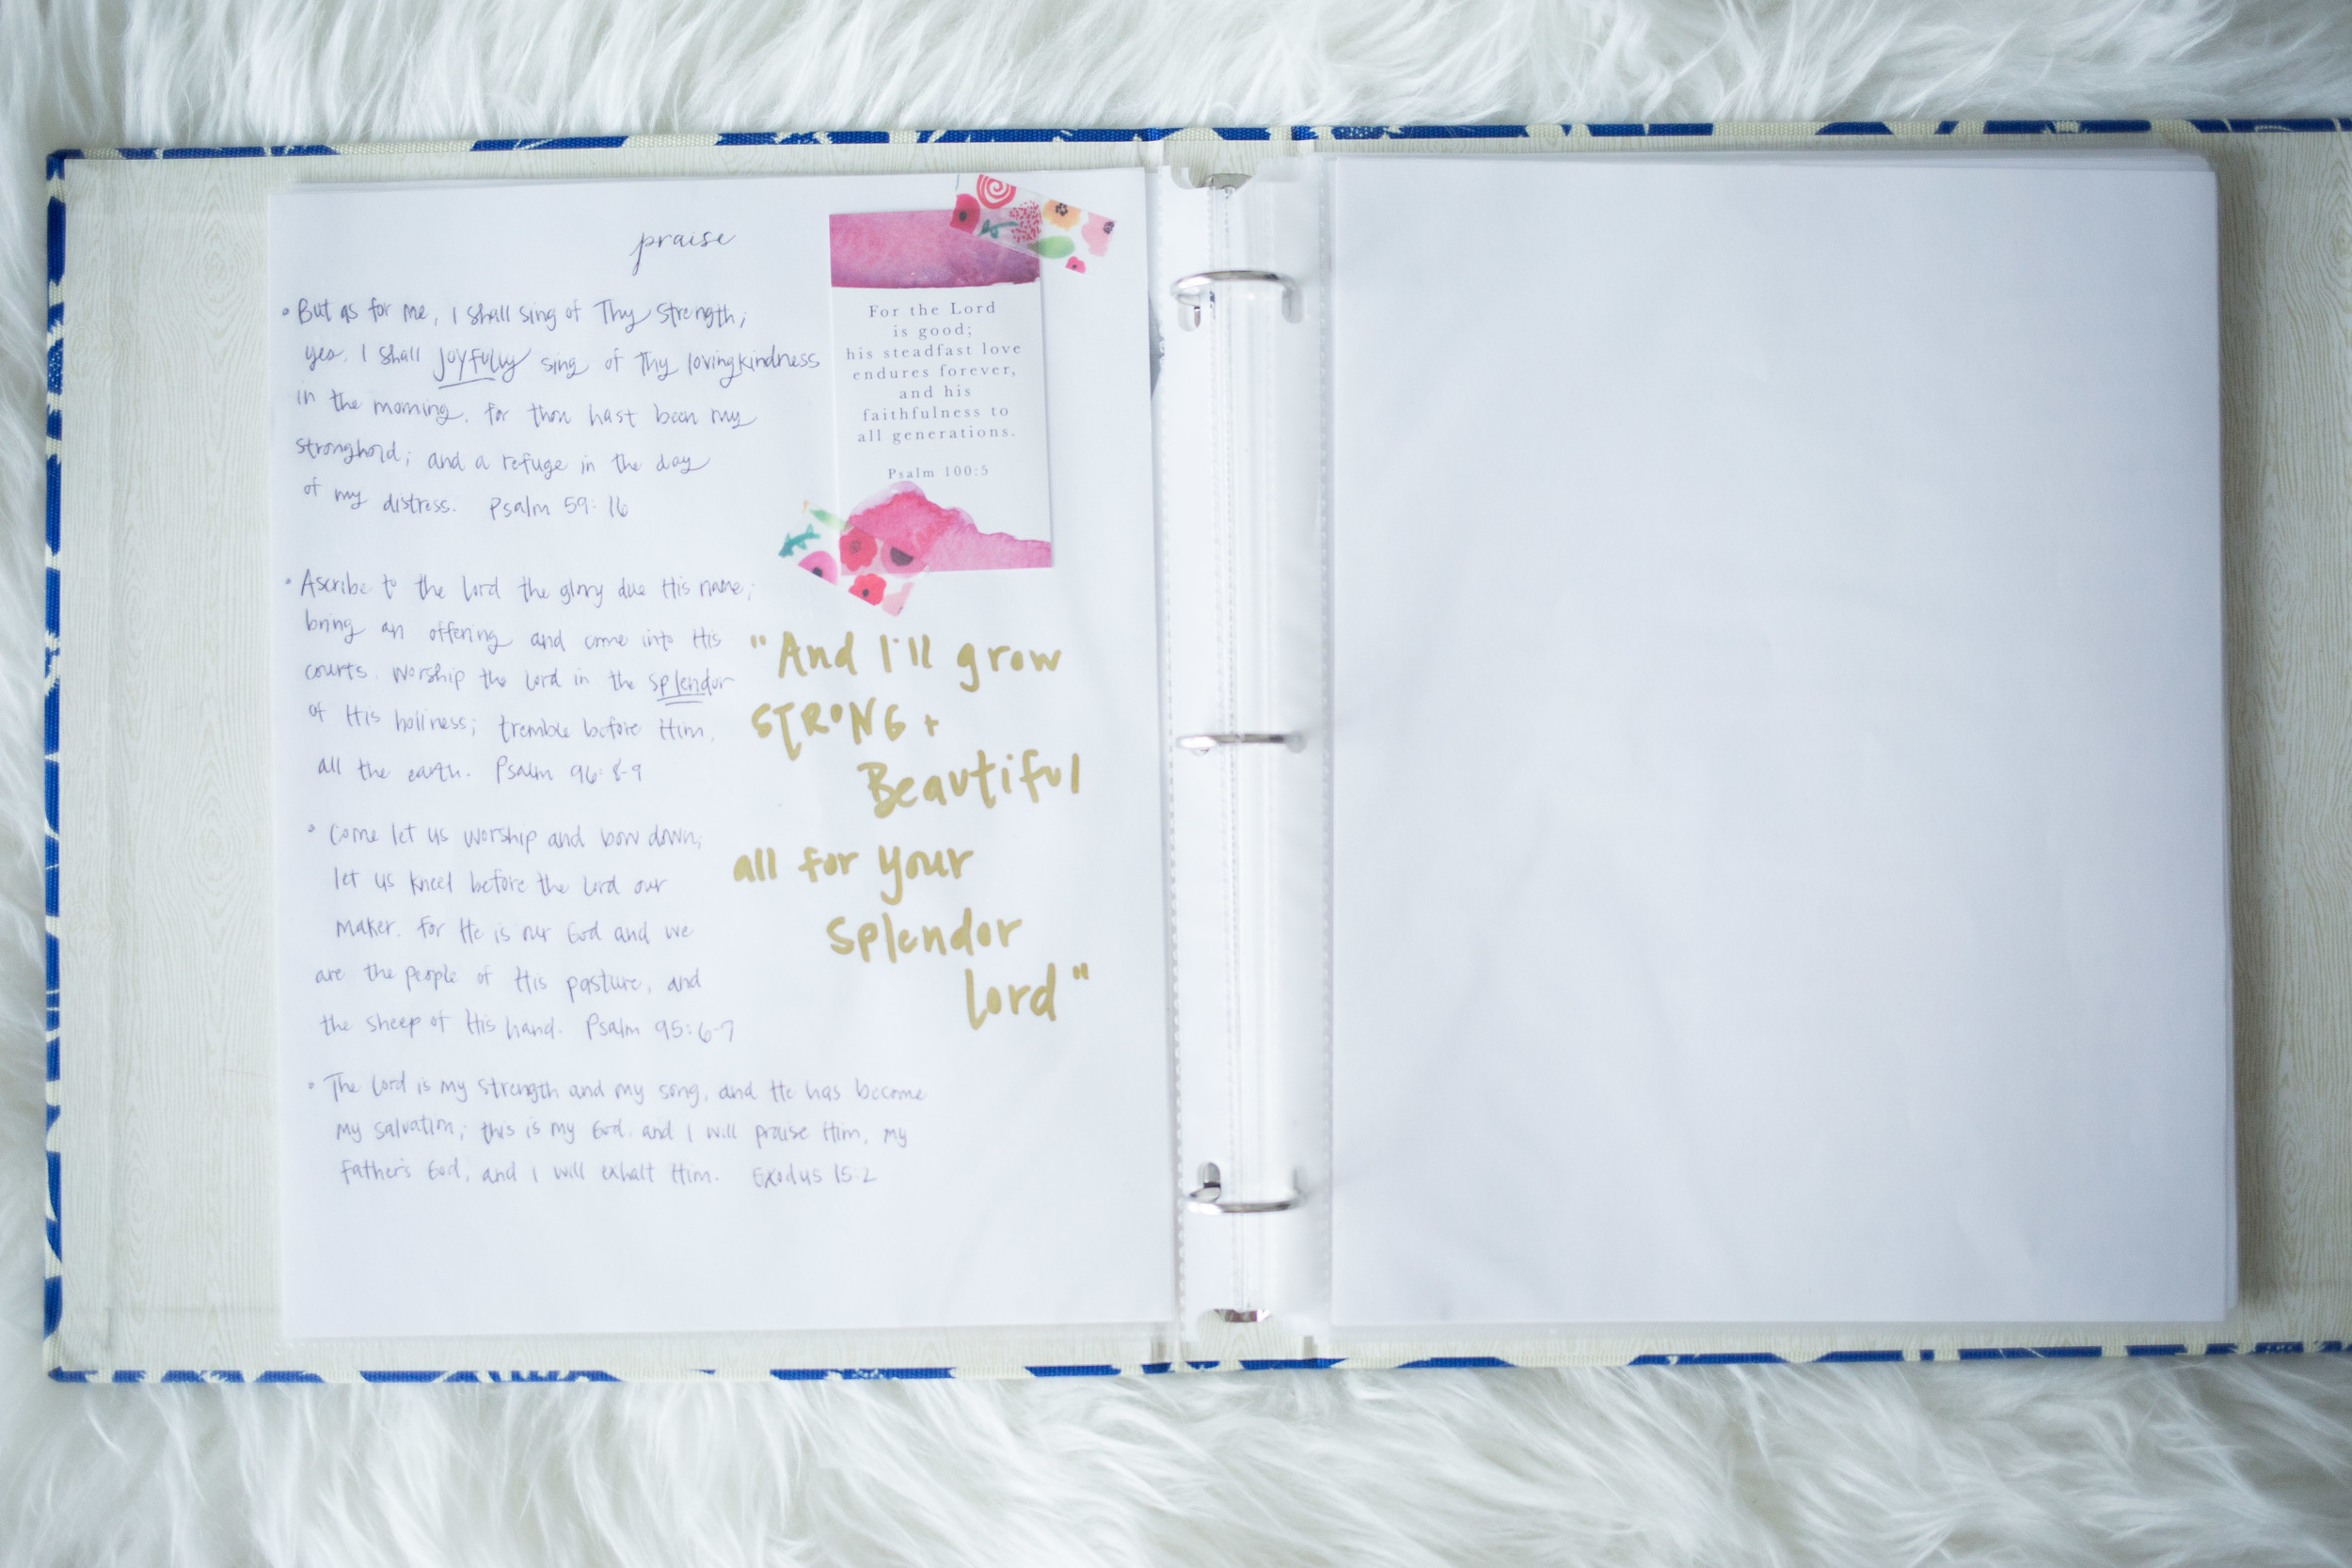 praise
• But as for me, I shall sing of Thy strength;
yes, I shall joyfully sing of Thy lovingkindness
in the morning, for thou hast been my
stronghold; and a refuge in the day
of my distress. Psalm 59:16
• Ascribe to the Lord the glory due His name;
bring an offering and come into His
courts. Worship the Lord in the splendor
of His holiness; tremble before Him,
all the earth. Psalm 96:8-9
• Come let us worship and bow down;
let us kneel before the Lord our
maker. For He is our God and we
are the people of His pasture, and
the sheep of His hand. Psalm 95:6-7
• The Lord is my strength and my song, and He has become
my salvation; this is my God, and I will praise Him, my
father's God, and I will exhalt Him. Exodus 15:2
For the Lord
is good;
his steadfast love
endures forever,
and his
faithfulness to
all generations.
Psalm 100:5
"And I'll grow
STRONG +
Beautiful
all for your
splendor
Lord"